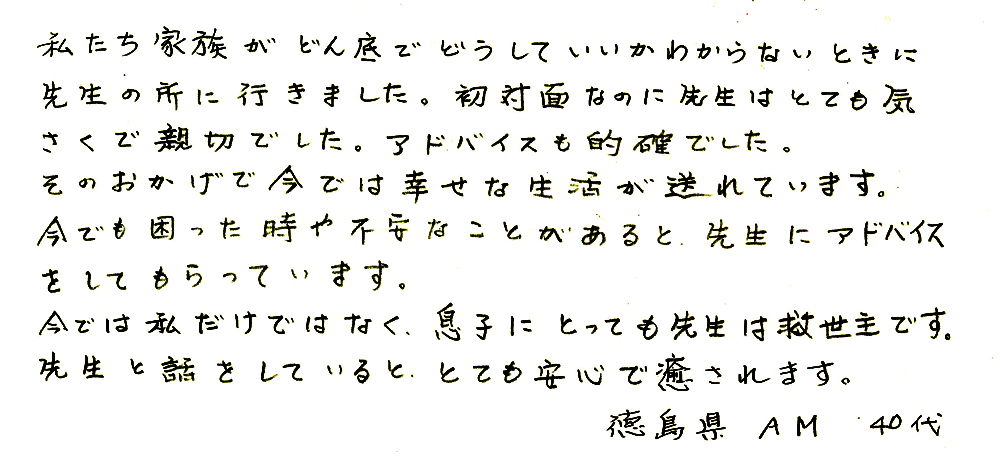 私たち家族がどん底でどうしていいかわからないときに
先生の所に行きました。初対面なのに先生はとても気
さくで親切でした。アドバイスも的確でした。
そのおかげで今では幸せな生活が送れています。
今でも困った時や不安なことがあると、先生にアドバイス
をしてもらっています。
今では私だけではなく、息子にとっても先生は救世主です。
先生と話をしていると、とても安心で癒されます。
徳島県 AM 40代